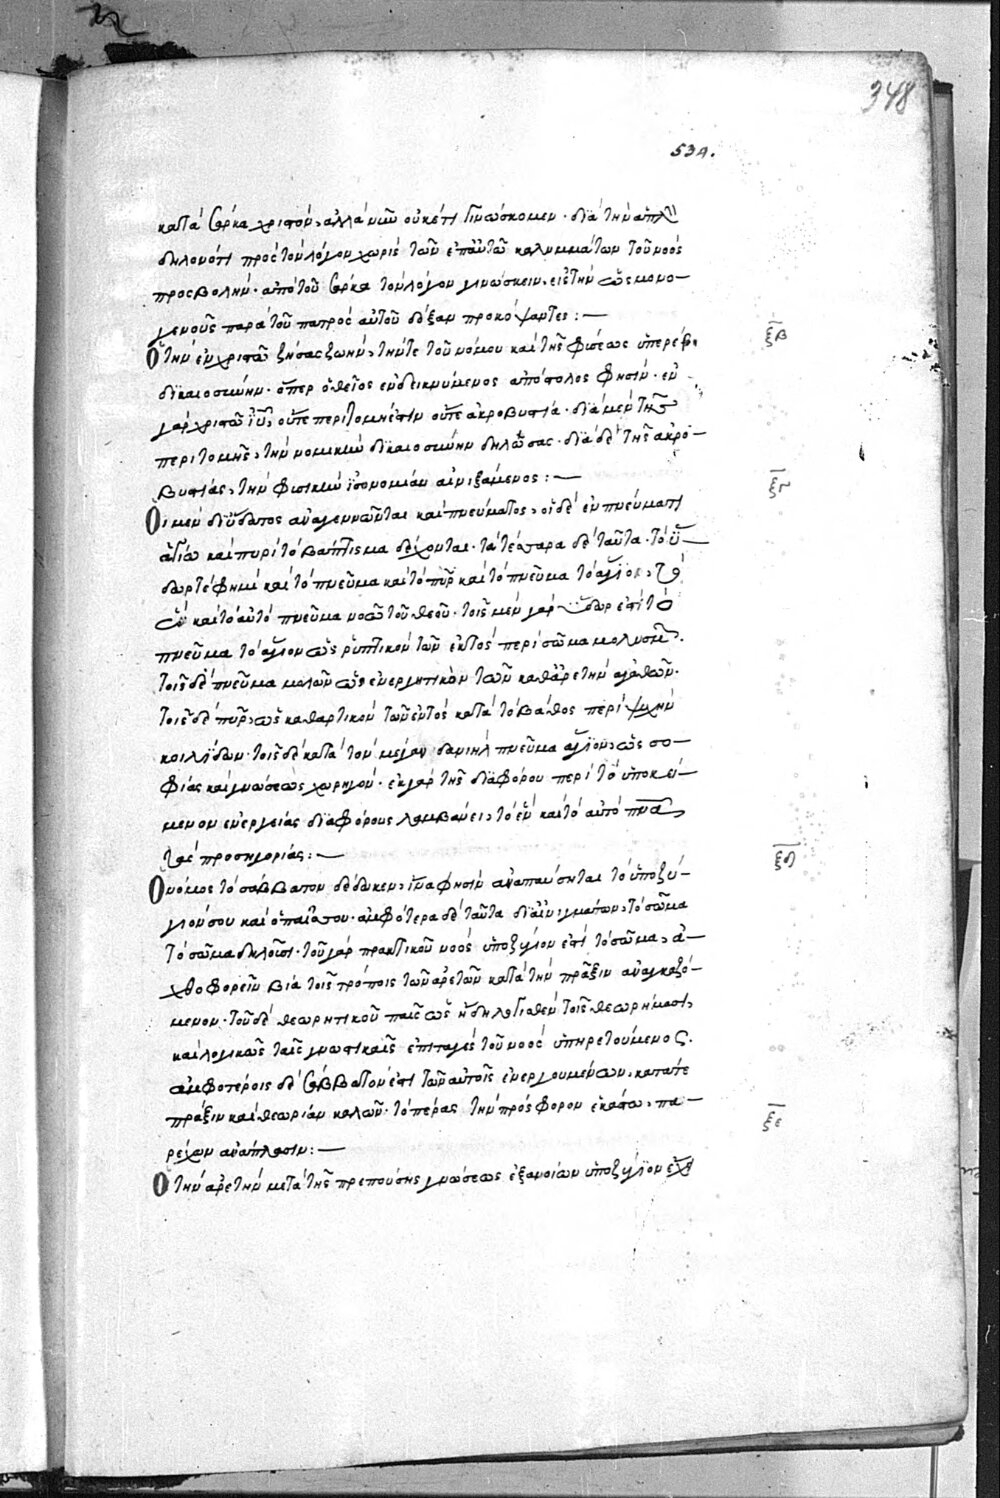 348
534.
κατὰ σάρκα χριστόν, ἀλλὰ νῦν οὐκέτι γινώσκομεν· διὰ τὴν ἁπλῆν
δηλονότι πρὸς τὸν λόγον χωρὶς τῶν ἐπ' αὐτῶ καλυμμάτων τοῦ νοὸς
προσβολὴν· ἀπὸ τοῦ σάρκα τὸν λόγον γινώσκειν, εἰς τὴν ὡς μονο-
γενοῦς παρὰ τοῦ πατρὸς αὐτοῦ δόξαν προκόψαντες:—
Ὁ τὴν ἐν χριστῶ ζήσας ζωὴν, τήν τε τοῦ νόμου καὶ τῆς φύσεως ὑπερέβη ξβ
δικαιοσύνην· ὅπερ ὁ θεῖος ἐνδεικνύμενος ἀπόστολος φησίν· ἐν
γὰρ χριστῶ ἰῦ, οὔτε περιτομή ἐστιν οὔτε ἀκροβυστία· διὰ μὲν τῆς
περιτομῆς, τὴν νομικὴν δικαιοσύνην δηλώσας· διὰ δὲ τῆς ἀκρο-
βυστίας, τὴν φυσικὴν ἰσονομίαν αἰνιξάμενος:—
Οἱ μὲν δι' ὕδατος ἀναγεννῶνται καὶ πνεύματος, οἱ δὲ ἐν πνεύματι ξγ
ἁγίω καὶ πυρὶ τὸ βάπτισμα δέχονται· τὰ τέσσαρα δὲ ταῦτα· τὸ ὕ-
δωρ τέ φημι καὶ τὸ πνεῦμα καὶ τὸ πῦρ καὶ τὸ πνεῦμα τὸ ἅγιον, τὸ
ἓν καὶ τὸ αὐτὸ πνεῦμα νοῶ τοῦ θεοῦ· τοῖς μὲν γὰρ ὕδωρ ἐστὶ τὸ
πνεῦμα τὸ ἅγιον ὡς ῥυπτικὸν τῶν ἐκτὸς περὶ σῶμα μολυσμῶν.
τοῖς δὲ πνεῦμα μόνον ὡς ἐνεργητικὸν τῶν κατ' ἀρετὴν ἀγαθῶν·
τοῖς δὲ πῦρ, ὡς καθαρτικὸν τῶν ἐντὸς κατὰ τὸ βάθος περὶ ψυχὴν
κοιλίδων· τοῖς δὲ κατὰ τὸν μέγαν δανιὴλ πνεῦμα ἅγιον, ὡς σο-
φίας καὶ γνώσεως χορηγόν· ἐκ γὰρ τῆς διαφόρου περὶ τὸ ὑποκεί-
μενον ἐνεργείας διαφόρους λαμβάνει, τὸ ἓν καὶ τὸ αὐτὸ πνα
τὰς προσηγορίας:—
Ὁ νόμος τὸ σάββατον δέδωκεν, ἵνα φησὶν ἀναπαύσηται τὸ ὑποζύ- ξδ
γιόν σου καὶ ὁ παῖς σου· ἀμφότερα δὲ ταῦτα δι' αἰνιγμάτων, τὸ σῶμα
τὸ σῶμα δηλοῦσι· τοῦ γὰρ πρακτικοῦ νοὸς ὑποζύγιον ἐστὶ τὸ σῶμα, ἀ-
χθοφορεῖν βία τοῖς τρόποις τῶν ἀρετῶν κατὰ τὴν πρᾶξιν ἀναγκαζό-
μενον· τοῦ δὲ θεωρητικοῦ παῖς ὡς ἤδη λογισθὲν τοῖς θεωρήμασι,
καὶ λογικῶς ταῖς γνωστικαῖς ἐπιταγαῖς τοῦ νοὸς ὑπηρετούμενος.
ἀμφοτέροις δὲ σάββατον ἐστὶ τῶν αὐτοῖς ἐνεργουμένων, κατά τε
πρᾶξιν καὶ θεωρίαν καλῶν· τὸ πέρας τὴν πρόσφορον ἑκάστω, πα-
ρέχων ἀνάπαυσιν:—
Ὁ τὴν ἀρετὴν μετὰ τῆς πρεπούσης γνώσεως ἐξανύων ὑποζύγιον ἔχει ξε